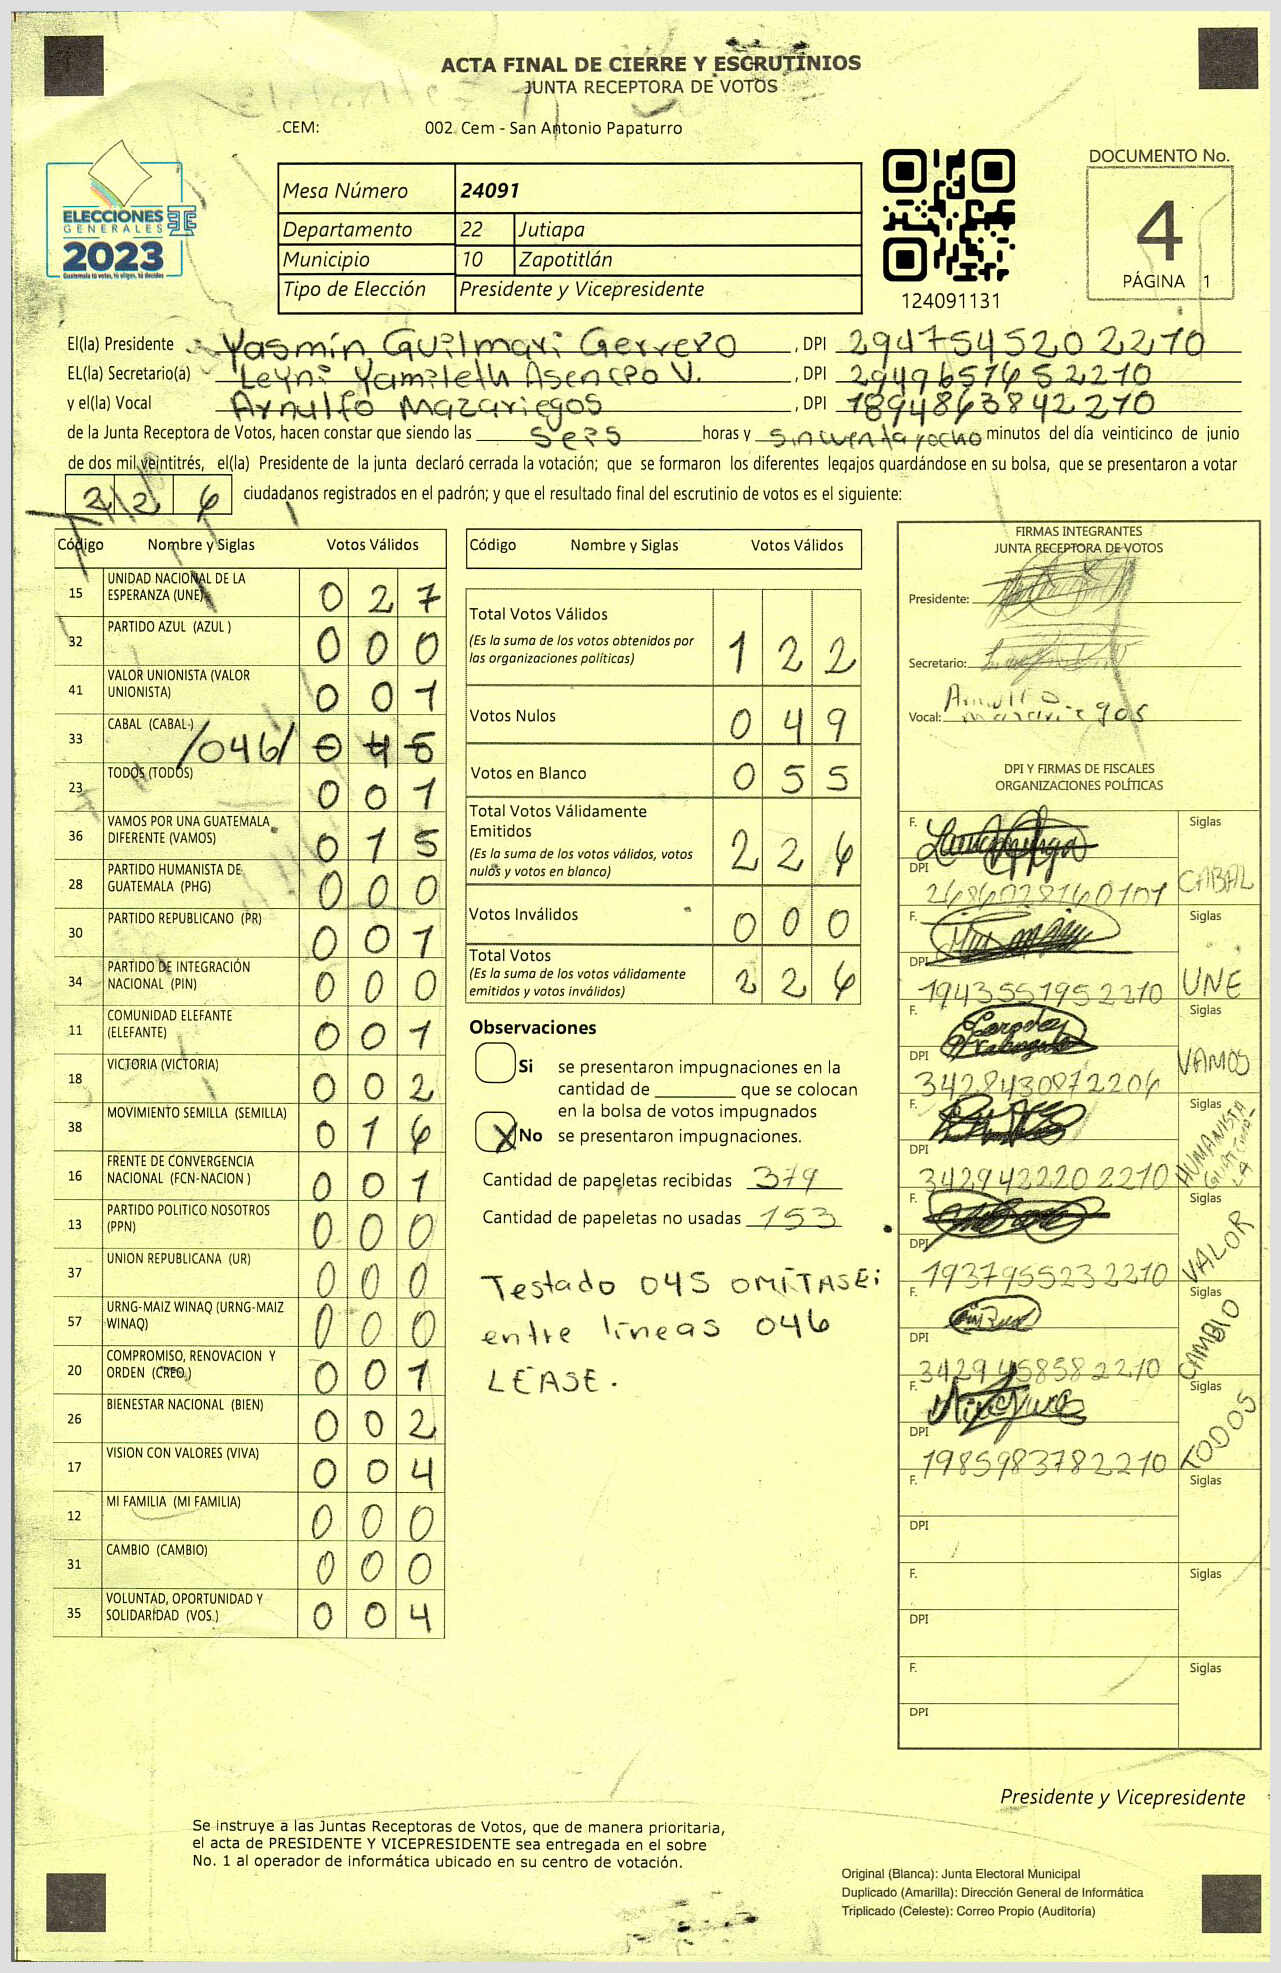 ACTA FINAL DE CIERRE Y ESCRUTINIOS
JUNTA RECEPTORA DE VOTOS
CEM: 002 Cem - San Antonio Papaturro
ELECCIONES
GENERALES
2023
Guatemala tú votas, tú eliges, tú decides
Mesa Número 24091
Departamento 22 Jutiapa
Municipio 10 Zapotitlán
Tipo de Elección Presidente y Vicepresidente
124091131
DOCUMENTO No.
4
PÁGINA 1
El(la) Presidente Yasmín Guilmari Gerrero , DPI 2947545202270
EL(la) Secretario(a) Leyni Yamileth Asencio V. , DPI 2949651652210
y el(la) Vocal Arnulfo Mazariegos , DPI 1894863842210
de la Junta Receptora de Votos, hacen constar que siendo las seis horas y sincuentayocho minutos del día veinticinco de junio
de dos mil veintitrés, el(la) Presidente de la junta declaró cerrada la votación; que se formaron los diferentes legajos guardándose en su bolsa, que se presentaron a votar
226 ciudadanos registrados en el padrón; y que el resultado final del escrutinio de votos es el siguiente:
Código Nombre y Siglas Votos Válidos
15 UNIDAD NACIONAL DE LA ESPERANZA (UNE) 027
32 PARTIDO AZUL (AZUL ) 000
41 VALOR UNIONISTA (VALOR UNIONISTA) 001
33 CABAL (CABAL) /046/ 045
23 TODOS (TODOS) 001
36 VAMOS POR UNA GUATEMALA DIFERENTE (VAMOS) 015
28 PARTIDO HUMANISTA DE GUATEMALA (PHG) 000
30 PARTIDO REPUBLICANO (PR) 001
34 PARTIDO DE INTEGRACIÓN NACIONAL (PIN) 000
11 COMUNIDAD ELEFANTE (ELEFANTE) 001
18 VICTORIA (VICTORIA) 002
38 MOVIMIENTO SEMILLA (SEMILLA) 016
16 FRENTE DE CONVERGENCIA NACIONAL (FCN-NACION ) 001
13 PARTIDO POLITICO NOSOTROS (PPN) 000
37 UNION REPUBLICANA (UR) 000
57 URNG-MAIZ WINAQ (URNG-MAIZ WINAQ) 000
20 COMPROMISO, RENOVACION Y ORDEN (CREO.) 001
26 BIENESTAR NACIONAL (BIEN) 002
17 VISION CON VALORES (VIVA) 004
12 MI FAMILIA (MI FAMILIA) 000
31 CAMBIO (CAMBIO) 000
35 VOLUNTAD, OPORTUNIDAD Y SOLIDARIDAD (VOS.) 004
Código Nombre y Siglas Votos Válidos
Total Votos Válidos 122
(Es la suma de los votos obtenidos por
las organizaciones políticas)
Votos Nulos 049
Votos en Blanco 055
Total Votos Válidamente
Emitidos 226
(Es la suma de los votos válidos, votos
nulos y votos en blanco)
Votos Inválidos 000
Total Votos 226
(Es la suma de los votos válidamente
emitidos y votos inválidos)
Observaciones
Si se presentaron impugnaciones en la
cantidad de ________ que se colocan
en la bolsa de votos impugnados
X No se presentaron impugnaciones.
Cantidad de papeletas recibidas 379
Cantidad de papeletas no usadas 153
Testado 045 OMITASE;
entre lineas 046
LEASE.
FIRMAS INTEGRANTES
JUNTA RECEPTORA DE VOTOS
Presidente:
Secretario:
Vocal: Arnulfo
Mazariegos
DPI Y FIRMAS DE FISCALES
ORGANIZACIONES POLÍTICAS
F. Siglas
DPI 2686028160101 CABAL
F. Siglas
DPI 1943551952210 UNE
F. Siglas
DPI 3428430872206 VAMOS
F. Siglas
DPI 3429422202210 HUMANISTA
F. Siglas
DPI 1937955232210 VALOR
F. Siglas
DPI 3429458582210 CAMBIO
F. Siglas
DPI 1985983782210 TODOS
F. Siglas
DPI
F. Siglas
DPI
F. Siglas
DPI
Presidente y Vicepresidente
Se instruye a las Juntas Receptoras de Votos, que de manera prioritaria,
el acta de PRESIDENTE Y VICEPRESIDENTE sea entregada en el sobre
No. 1 al operador de informática ubicado en su centro de votación.
Original (Blanca): Junta Electoral Municipal
Duplicado (Amarilla): Dirección General de Informática
Triplicado (Celeste): Correo Propio (Auditoría)